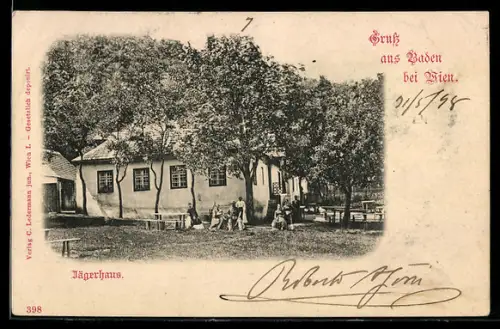 7
Gruß
aus Baden
bei Wien.
21/5/98
Verlag C. Ledermann jun., Wien I. – Gesetzlich deponirt.
Jägerhaus.
398